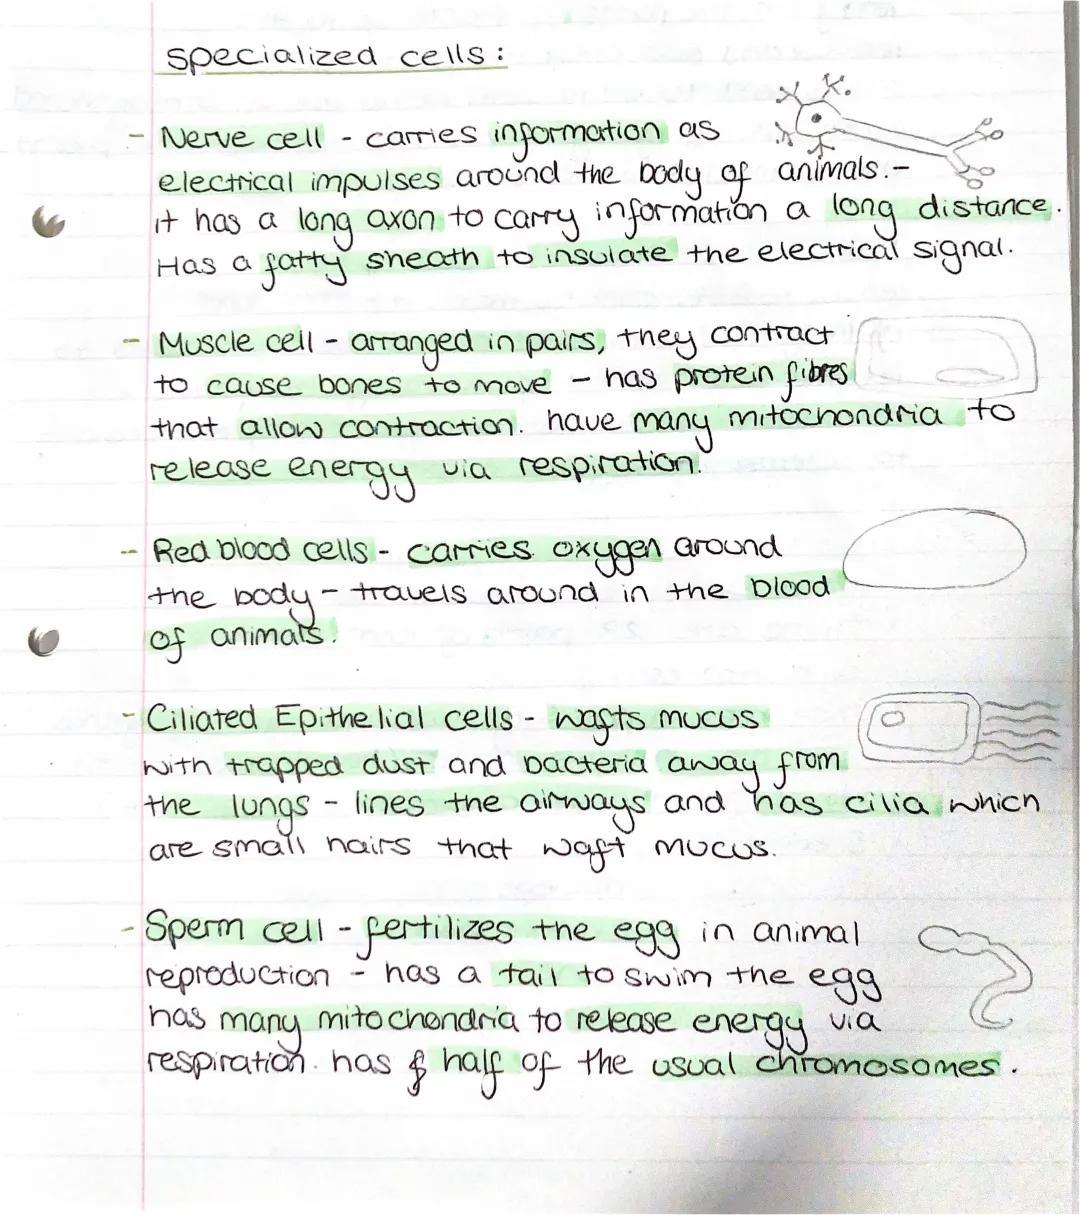 specialized cells:
- Nerve cell - carries information as
electrical impulses around the body of animals.-
it has a long axon to carry information a long distance.
Has a fatty sheath to insulate the electrical signal.
- Muscle cell - arranged in pairs, they contract
to cause bones to move - has protein fibres
that allow contraction. have many mitochondria to
release energy via respiration.
- Red blood cells - carries oxygen around
the body - travels around in the blood
of animals.
- Ciliated Epithelial cells - wafts mucus
with trapped dust and bacteria away from
the lungs - lines the airways and has cilia which
are small hairs that waft mucus.
- Sperm cell - fertilizes the egg in animal
reproduction - has a tail to swim the egg
has many mitochondria to release energy via
respiration. has half of the usual chromosomes.